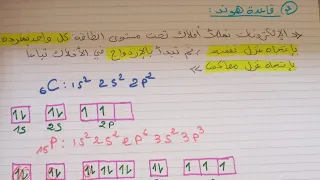 ② قاعدة هوند:
« الإلكترونات تملأ أفلاك تحت مستوى الطاقة كل واحد بمفرده
بإتجاه غزل نفسه، ثم تبدأ بالإزدواج في الأفلاك تباعا
بإتجاه غزل معاكس »
₆C: 1s² 2s² 2p²
1↓ 1↓ 1 1
1s 2s 2p
₁₅P: 1s² 2s² 2p⁶ 3s² 3p³
1↓ 1↓ 1↓ 1↓ 1↓ 1↓ 1 1 1